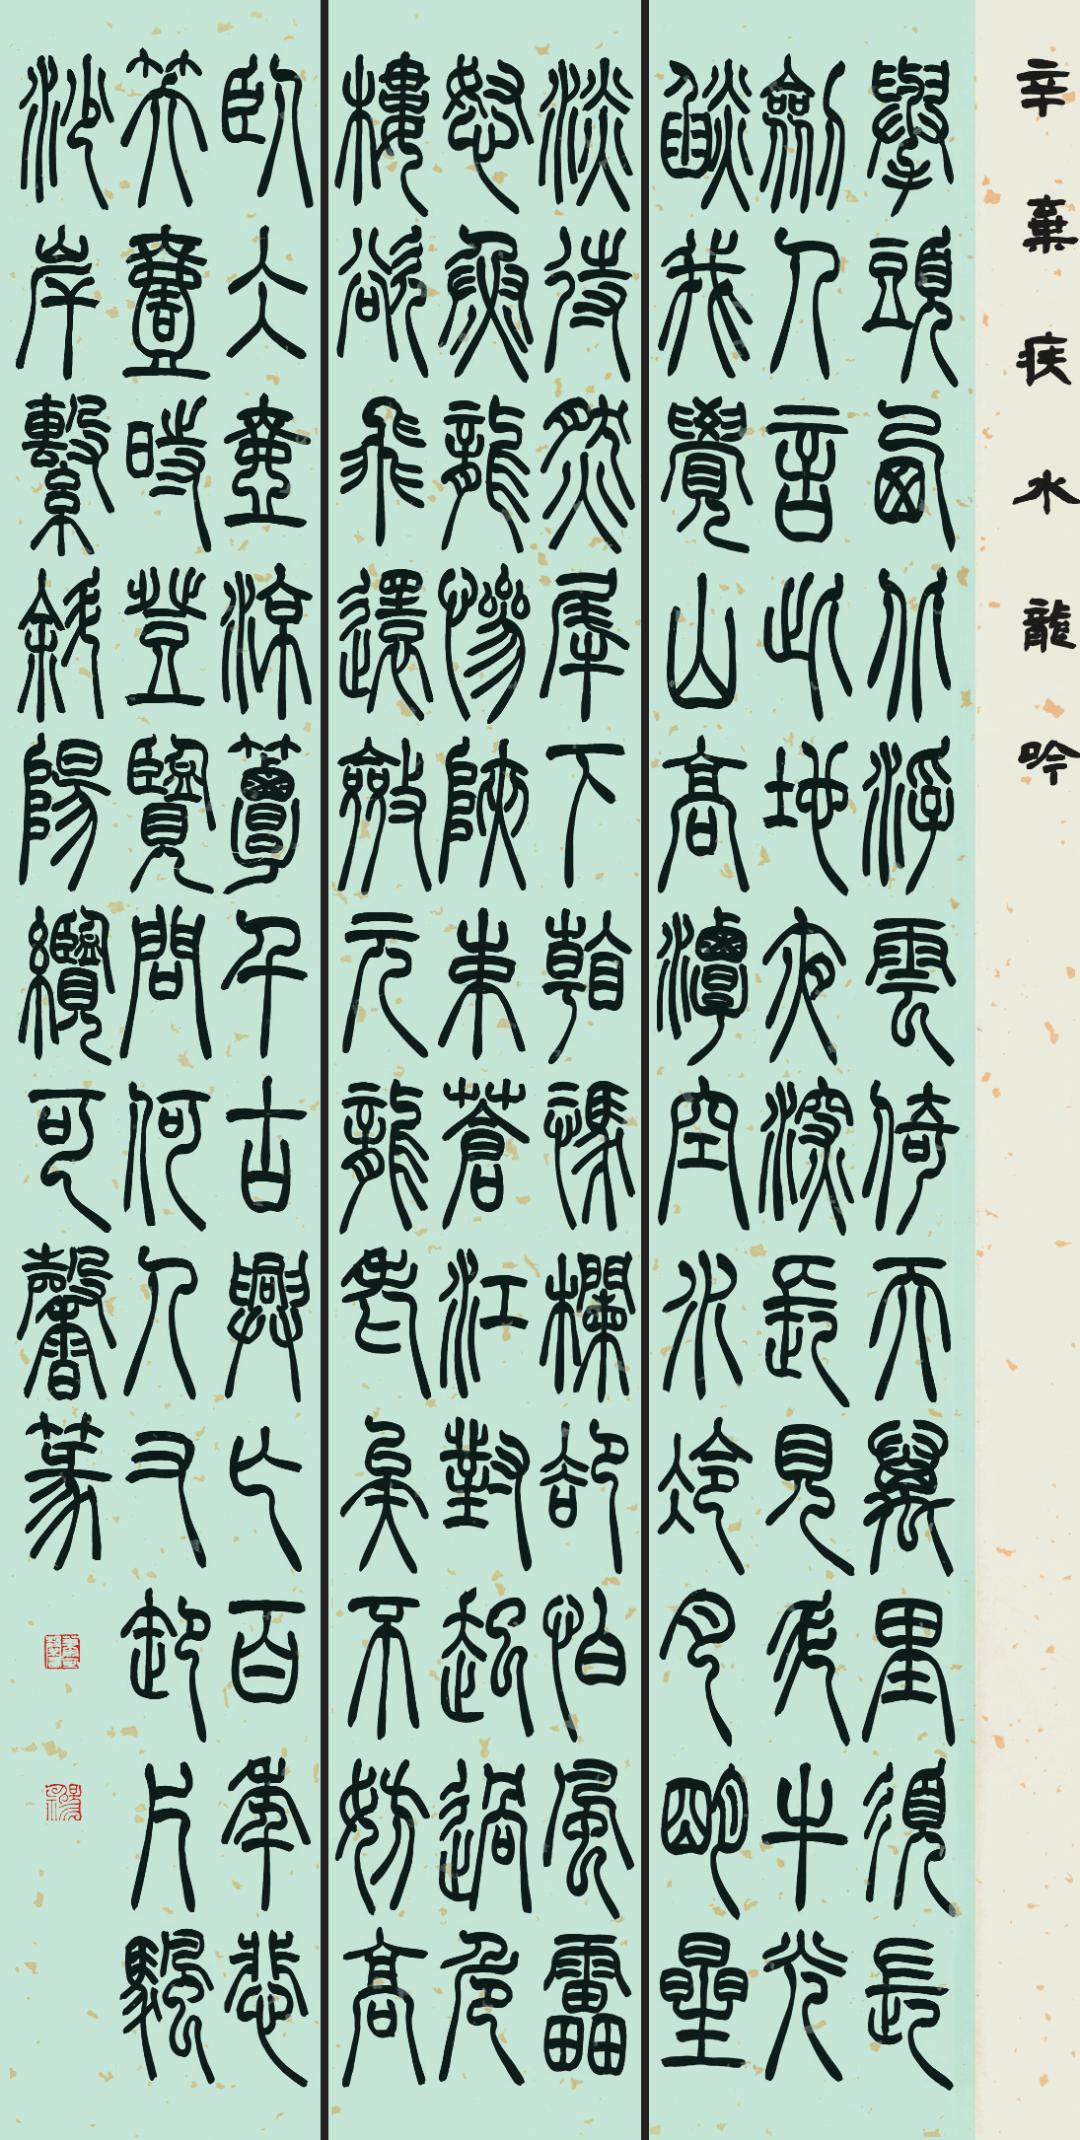 辛棄疾水龍吟
舉頭西北浮雲倚天萬里須長
劍人言此地夜深長見斗牛光
燄我覺山高潭空水冷月明星
淡待然犀下看憑欄卻怕風雷
怒魚龍慘峽束蒼江對起過危
樓欲飛還斂元龍老矣不妨高
臥冰壺涼簟千古興亡百年悲
笑壹時登覽問何人又卸片颿
沙岸繫斜陽纜可馨篆